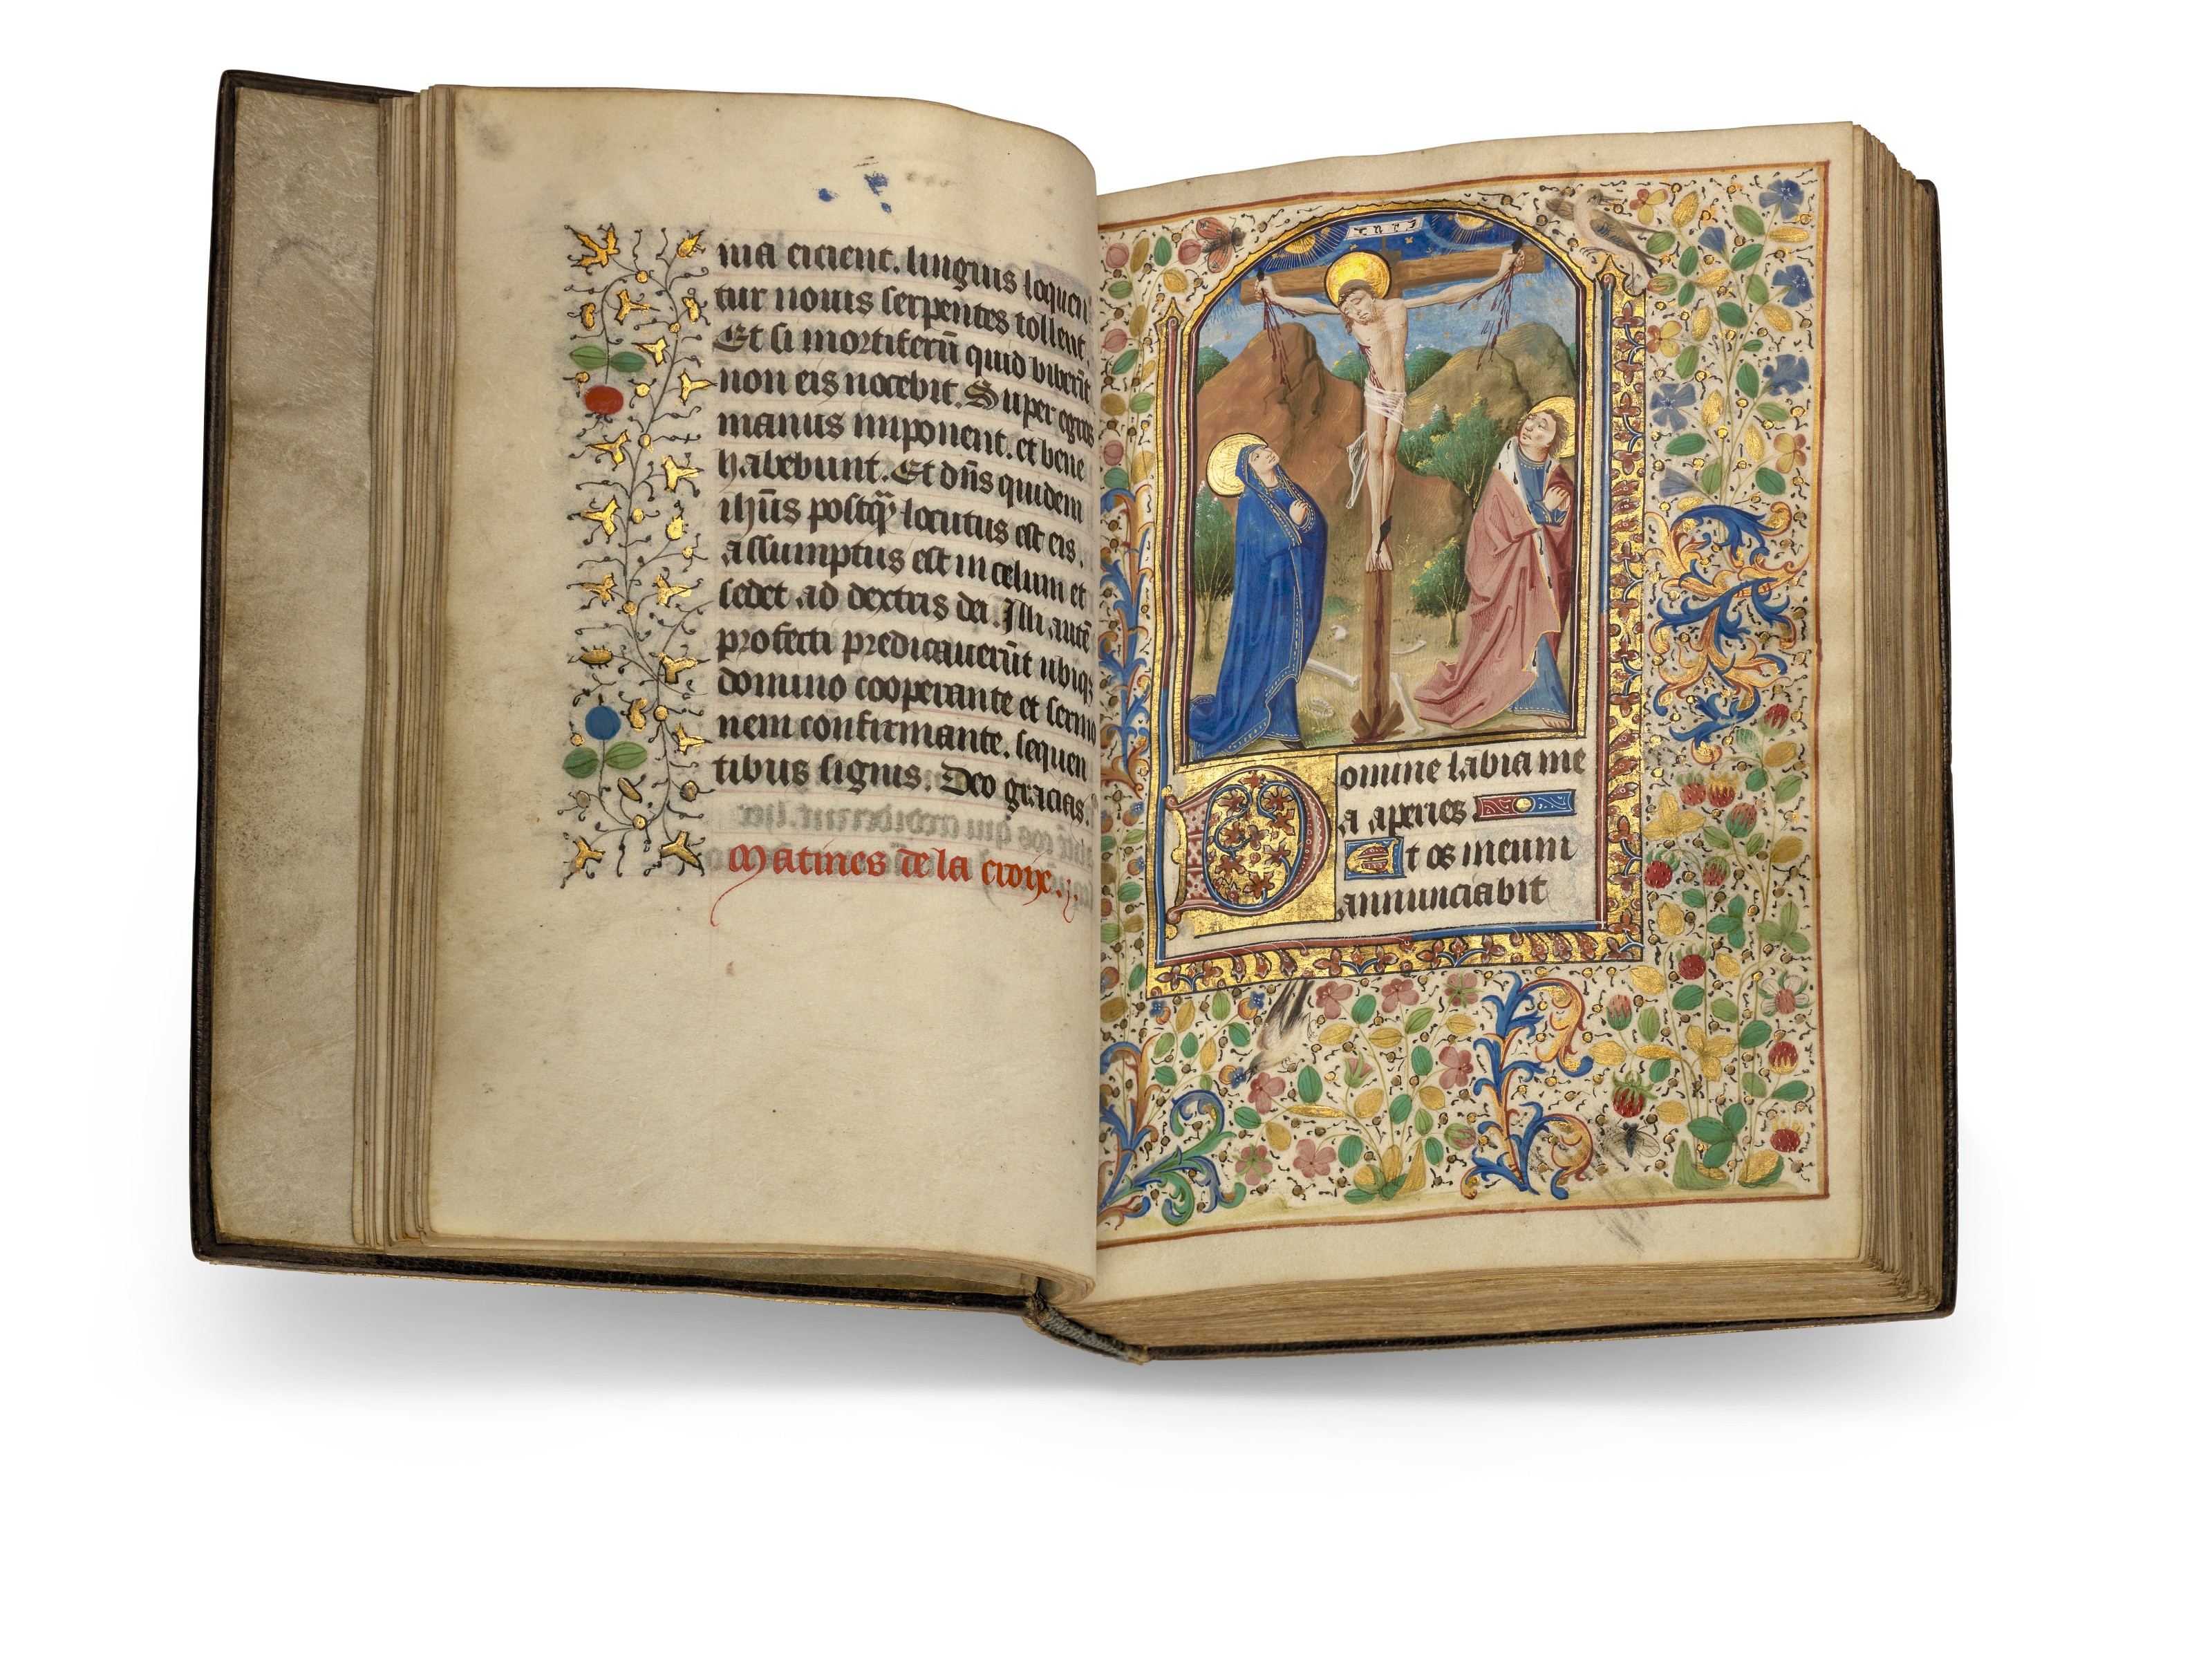 nia eicient. linguis loquen
tur nouis serpentes tollent.
Et si mortiferū quid biberīt
non eis nocebit. Super egros
manus imponent. et bene
habebunt. Et dn̄s quidem
ihūs postq̄ locutus est eis.
assumptus est in celum et
sedet ad dextris dei. Illi autē
profecti predicauerūt ubiqꝫ
domino cooperante et sermo
nem confirmante. sequen
tibus signis. Deo gracias.
Matines de la croix.
Domine labia me
a aperies
Et os meum
annunciabit